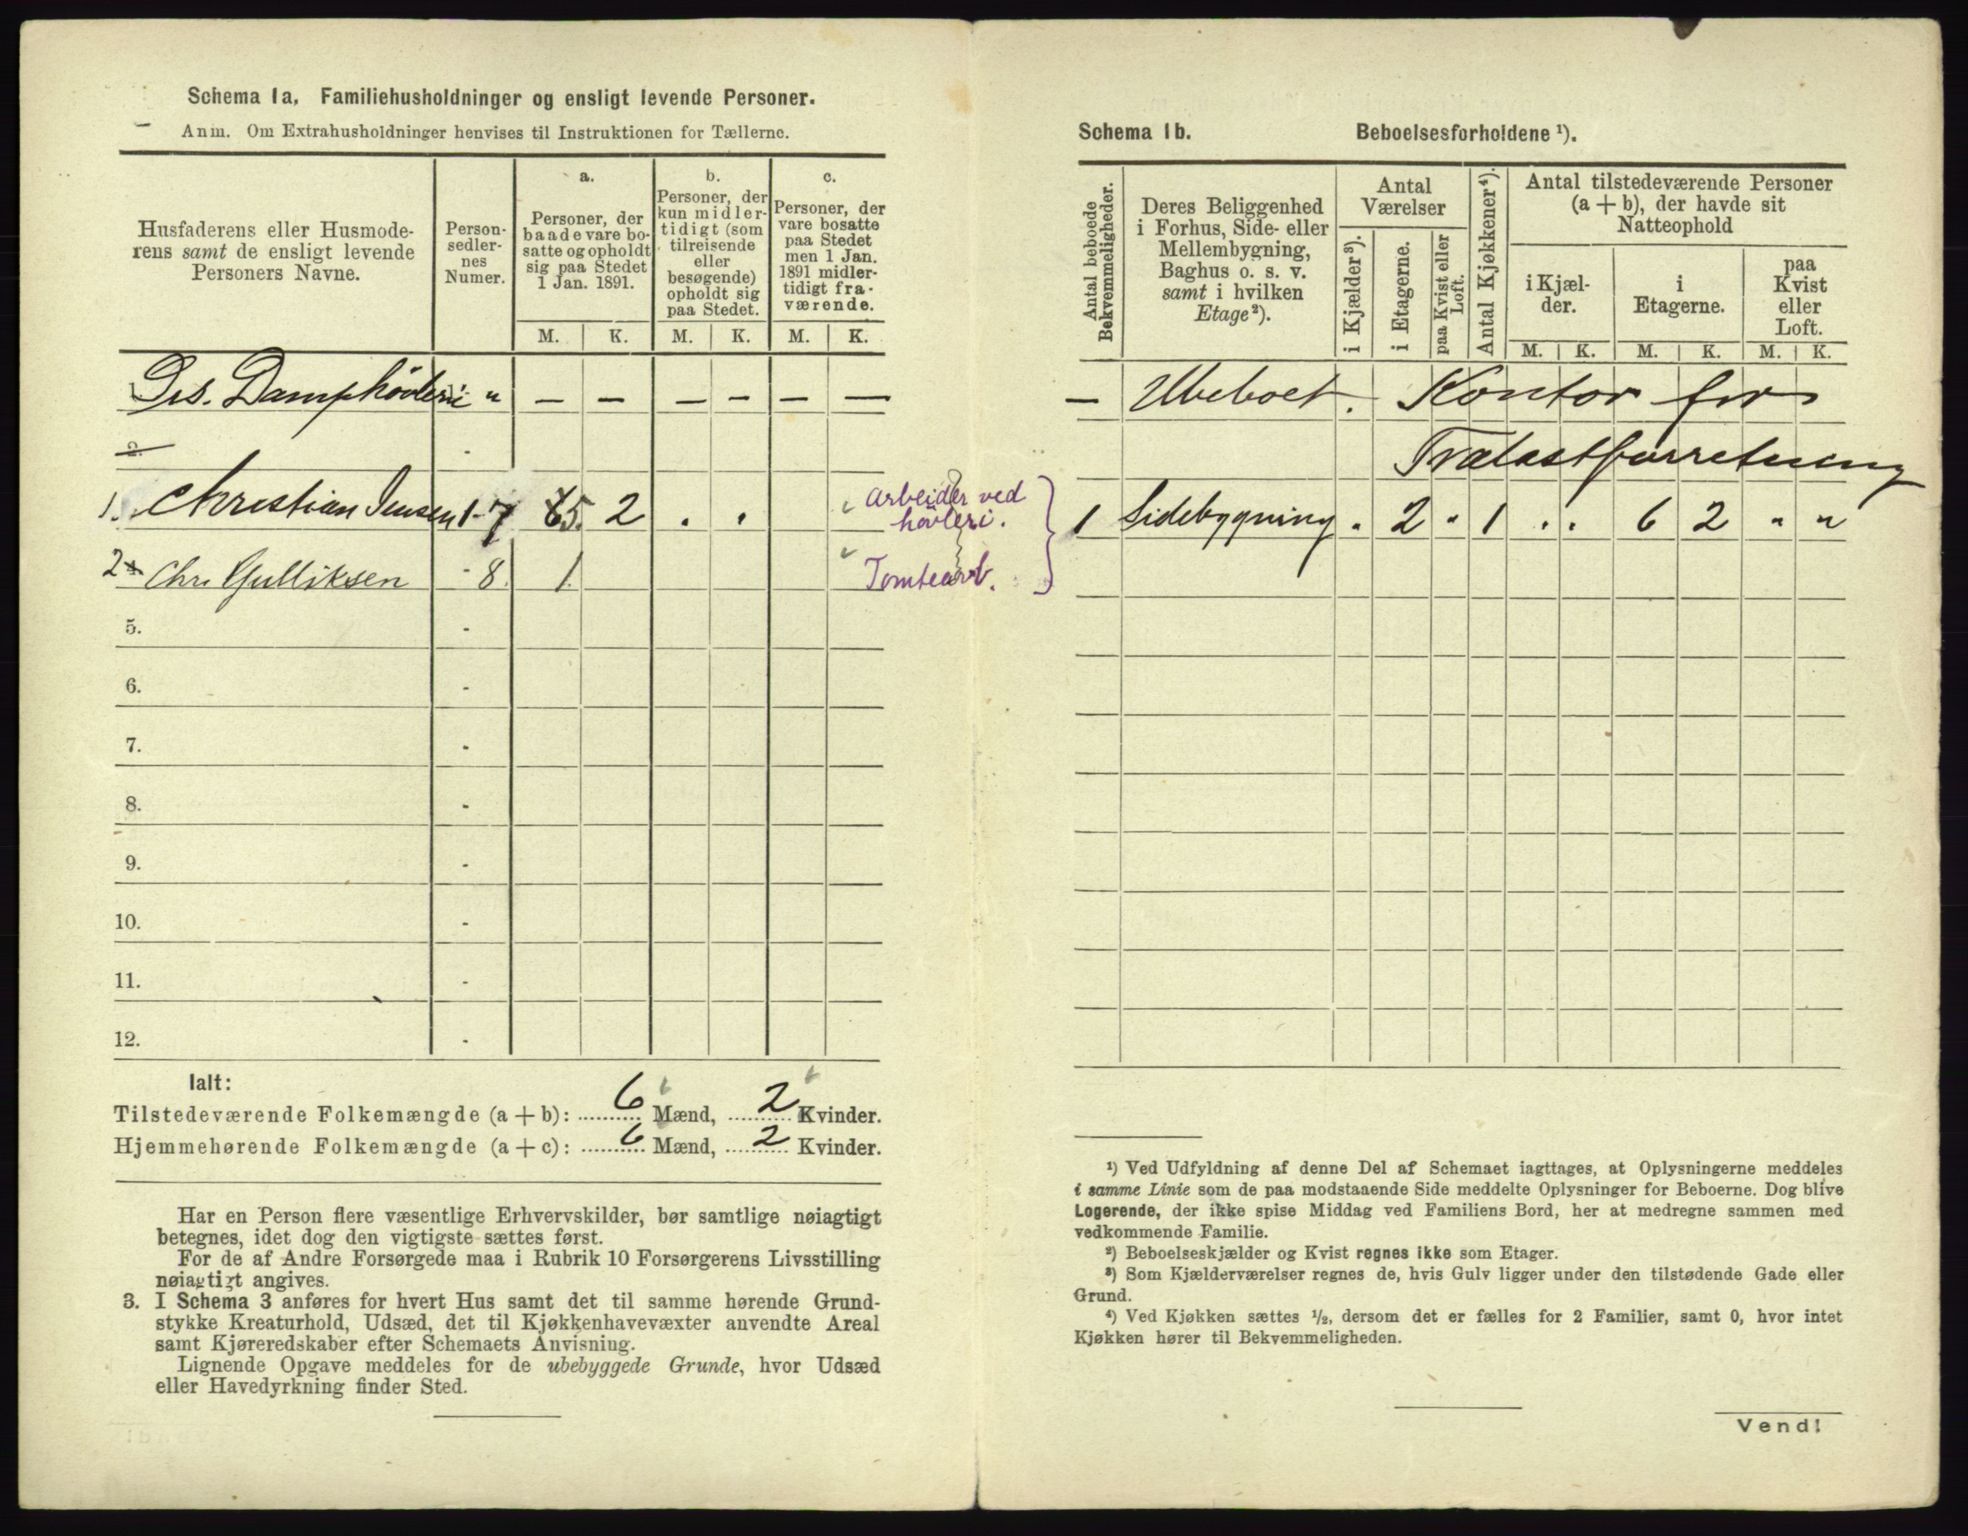 Schema 1a. Familiehusholdninger og ensligt levende Personer.
Anm. Om Extrahusholdninger henvises til Instruktionen for Tællerne.
Husfaderens eller Husmode-
rens samt de ensligt levende
Personers Navne.
Person-
sedler-
nes
Numer.
a.
Personer, der
baade vare bo-
satte og opholdt
sig paa Stedet
1 Jan. 1891.
b.
Personer, der
kun midler-
tidigt (som
tilreisende
eller
besøgende)
opholdt sig
paa Stedet.
c.
Personer, der
vare bosatte
paa Stedet
men 1 Jan.
1891 midler-
tidigt fra-
værende.
M. K. M. K. M. K.
Damphövleri " — — — — — —
2.
1. Christian Jensen 1-7 65. 2 . . Arbeider ved
hövleri.
2 Chr. Gulliksen - 8. 1. Tomtearb.
5. -
6. -
7. -
8. -
9. -
10. -
11. -
12. -
Ialt:
Tilstedeværende Folkemængde (a + b): 6 Mænd, 2 Kvinder.
Hjemmehørende Folkemængde (a + c): 6 Mænd, 2 Kvinder.
Har en Person flere væsentlige Erhvervskilder, bør samtlige nøiagtigt
betegnes, idet dog den vigtigste sættes først.
For de af Andre Forsørgede maa i Rubrik 10 Forsørgerens Livsstilling
nøiagtigt angives.
3. I Schema 3 anføres for hvert Hus samt det til samme hørende Grund-
stykke Kreaturhold, Udsæd, det til Kjøkkenhavevæxter anvendte Areal
samt Kjøreredskaber efter Schemaets Anvisning.
Lignende Opgave meddeles for de ubebyggede Grunde, hvor Udsæd
eller Havedyrkning finder Sted.
Schema 1b. Beboelsesforholdene ¹).
Antal beboede
Bekvemmeligheder.
Deres Beliggenhed
i Forhus, Side- eller
Mellembygning,
Baghus o. s. v.
samt i hvilken
Etage²).
Antal
Værelser
i Kjælder³).
i Etagerne.
paa Kvist eller
Loft.
Antal Kjøkkener⁴).
Antal tilstedeværende Personer
(a + b), der havde sit
Natteophold
i Kjæl-
der.
i
Etagerne.
paa
Kvist
eller
Loft.
M. K. M. K. M. K.
— Ubeboet. Kontor for
Trælastforretning
1 Sidebygning " 2 " 1 . . 6 2 " "
¹) Ved Udfyldning af denne Del af Schemaet iagttages, at Oplysningerne meddeles
i samme Linie som de paa modstaaende Side meddelte Oplysninger for Beboerne. Dog blive
Logerende, der ikke spise Middag ved Familiens Bord, her at medregne sammen med
vedkommende Familie.
²) Beboelseskjælder og Kvist regnes ikke som Etager.
³) Som Kjælderværelser regnes de, hvis Gulv ligger under den tilstødende Gade eller
Grund.
⁴) Ved Kjøkken sættes ½, dersom det er fælles for 2 Familier, samt 0, hvor intet
Kjøkken hører til Bekvemmeligheden.
Vend!